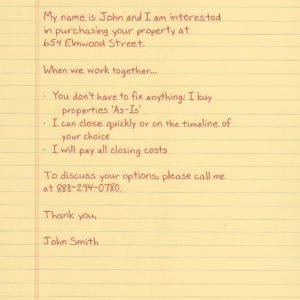 My name is John and I am interested
in purchasing your property at
654 Elmwood Street.
When we work together...
· You don't have to fix anything; I buy
properties 'As-Is'
· I can close quickly or on the timeline of
your choice
· I will pay all closing costs
To discuss your options, please call me
at 888-294-0780.
Thank you,
John Smith